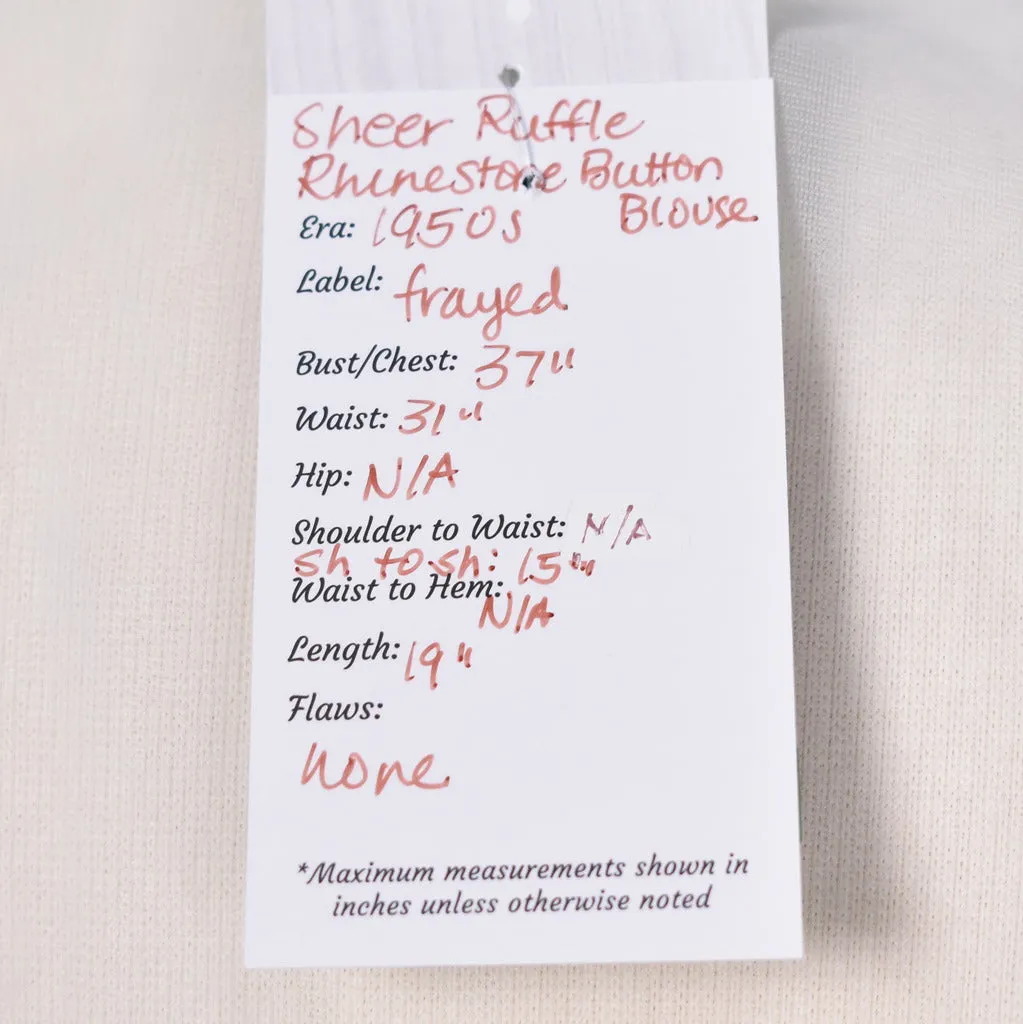 Sheer Ruffle
Rhinestone Button
Blouse
Era: 1950s
Label: frayed
Bust/Chest: 37"
Waist: 31"
Hip: N/A
Shoulder to Waist: N/A
Sh to sh: 15"
Waist to Hem: N/A
Length: 19"
Flaws:
none
*Maximum measurements shown in
inches unless otherwise noted